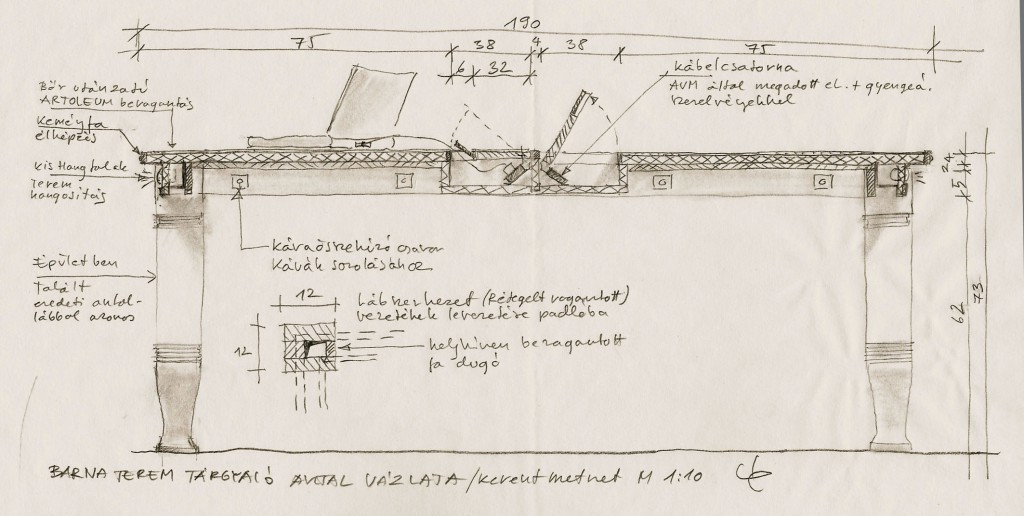 190
75 38 4 38 75
6 32
Bőr utánzatú
ARTOLEUM beragasztás
Keményfa
élképzés
kis Hangfalak
terem
hangosítás
kábelcsatorna
AVM által megadott el. + gyengeá.
szerelvényekkel
24
5
62
73
kávaösszehúzó csavar
kávák sorolásához
Épületben
Talált
eredeti asztal-
lábbal azonos
12
Lábszerkezet (Rétegelt ragasztott)
vezetékek levezetésére padlóba
12
helyszínen beragasztott
fa dugó
BARNA TEREM TÁRGYALÓ ASZTAL VÁZLATA / keresztmetszet M 1:10